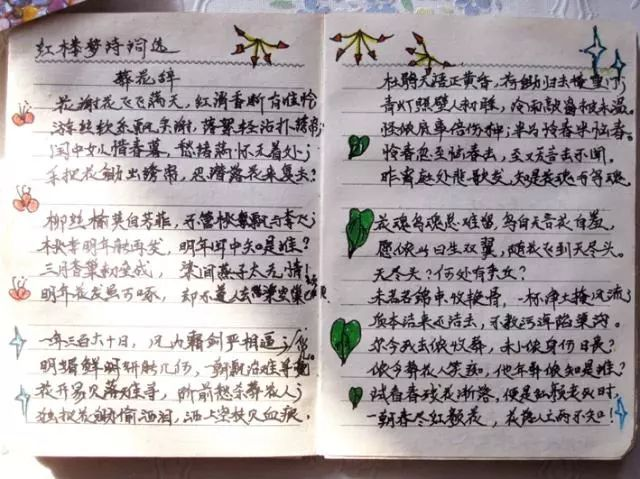 红楼梦诗词选
葬花辞
花谢花飞飞满天，红消香断有谁怜
游丝软系飘英榭，落絮轻沾扑绣帘；
闺中女儿惜春暮，愁绪满怀无着处；
手把花锄出绣帘，忍踏落花来复去？
柳丝榆荚自芳菲，不管桃飘与李飞；
桃李明年能再发，明年闺中知是谁？
三月香巢初垒成，梁间燕子太无情！
明年花发虽可啄，却不道人去梁空巢
一年三百六十日，风刀霜剑严相逼；
明媚鲜妍能几何，一朝飘泊难寻觅
花开易见落难寻，阶前愁杀葬花人；
独把花锄偷洒泪，洒上空枝见血痕。
杜鹃无语正黄昏，荷锄归去掩重门；
青灯照壁人初睡，冷雨敲窗被未温。
怪侬底事倍伤神；半为怜春半恼春。
怜春忽至恼春去，至又无言去不闻。
昨宵庭外悲歌发，知是花魂与鸟魂。
花魂鸟魂总难留，鸟自无言花自羞，
愿侬此日生双翼，随花飞到天尽头。
天尽头？何处有香丘？
未若锦束收艳骨，一抔净土掩风流；
质本洁来还洁去，不教污淖陷渠沟。
尔今死去侬收葬，未卜侬身何日丧？
侬今葬花人笑痴，他年葬侬知是谁？
试看春残花渐落，便是红颜老死时，
一朝春尽红颜老，花落人亡两不知！